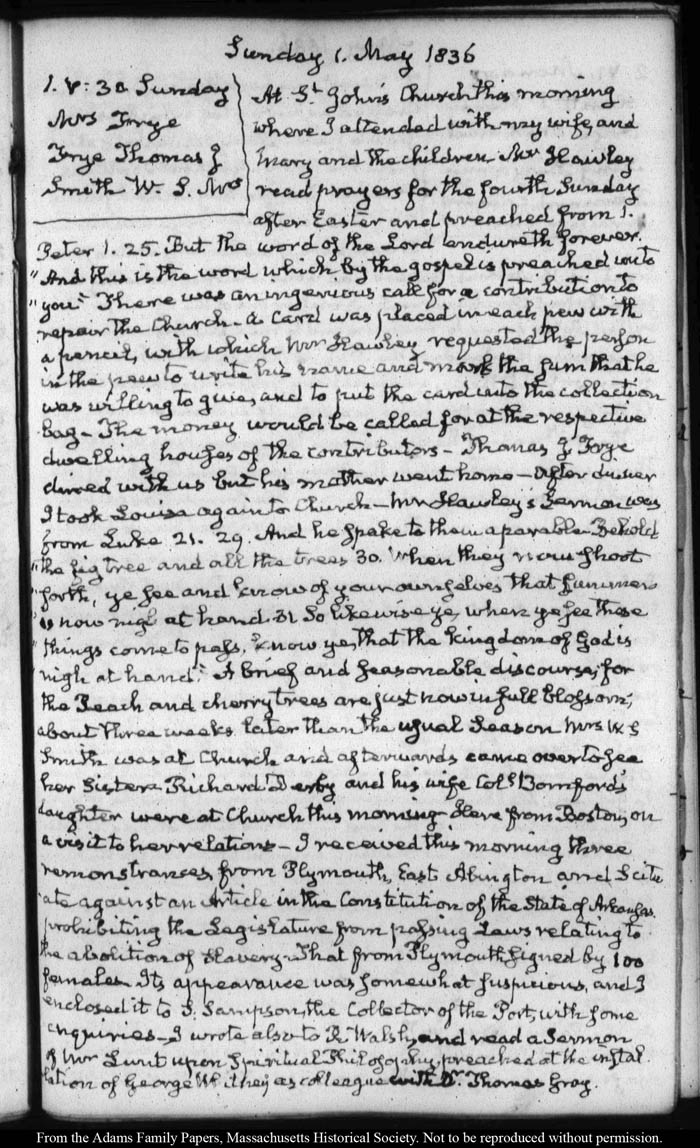 Sunday 1. May 1836
1. V: 30 Sunday
Mrs Frye
Frye Thomas J
Smith W. S. Mrs
At St. John's Church this morning
where I attended with my wife, and
Mary and the children. Mr Hawley
read prayers for the fourth Sunday
after Easter and preached from 1.
Peter 1. 25. But the word of the Lord endureth forever.
"And this is the word which by the gospel is preached unto
"you." There was an ingenious call for a contribution to
repair the Church. a Card was placed in each pew with
a pencil, with which Mr Hawley requested the person
in the pew to write his name and mark the sum that he
was willing to give, and to put the card into the collection
bag. The money would be called for at the respective
dwelling houses of the contributors. Thomas J. Frye
dined with us but his mother went home. After dinner
I took Louisa again to Church. Mr Hawley's Sermon was
from Luke 21. 29. And he spake to them a parable. Behold
"the fig tree and all the trees 30. When they now shoot
"forth, ye see and know of your own selves that summer
is now nigh at hand. 31 So likewise ye, when ye see these
"things come to pass, know ye, that the kingdom of God is
nigh at hand." A brief and seasonable discourse; for
the Peach and cherry trees are just now in full blossom;
about three weeks later than the usual Season Mrs W S
Smith was at Church and afterwards came over to see
her Sister. Richard Derby and his wife Coll. Bomford's
daughter were at Church this morning. Here from Boston, on
a visit to her relations. I received this morning three
remonstrances, from Plymouth, East Abington and Scitu
ate against an Article in the Constitution of the State of Arkansas.
prohibiting the Legislature from passing Laws relating to
the abolition of Slavery. That from Plymouth signed by 100
females. Its appearance was somewhat suspicious, and I
enclosed it to S. Sampson, the Collector of the Port, with some
enquiries. I wrote also to R. Walsh, and read a Sermon
of Mr Lunt upon Spiritual Philosophy, preached at the instal
lation of George Whitney as colleague with Dr. Thomas Gray.
From the Adams Family Papers, Massachusetts Historical Society. Not to be reproduced without permission.